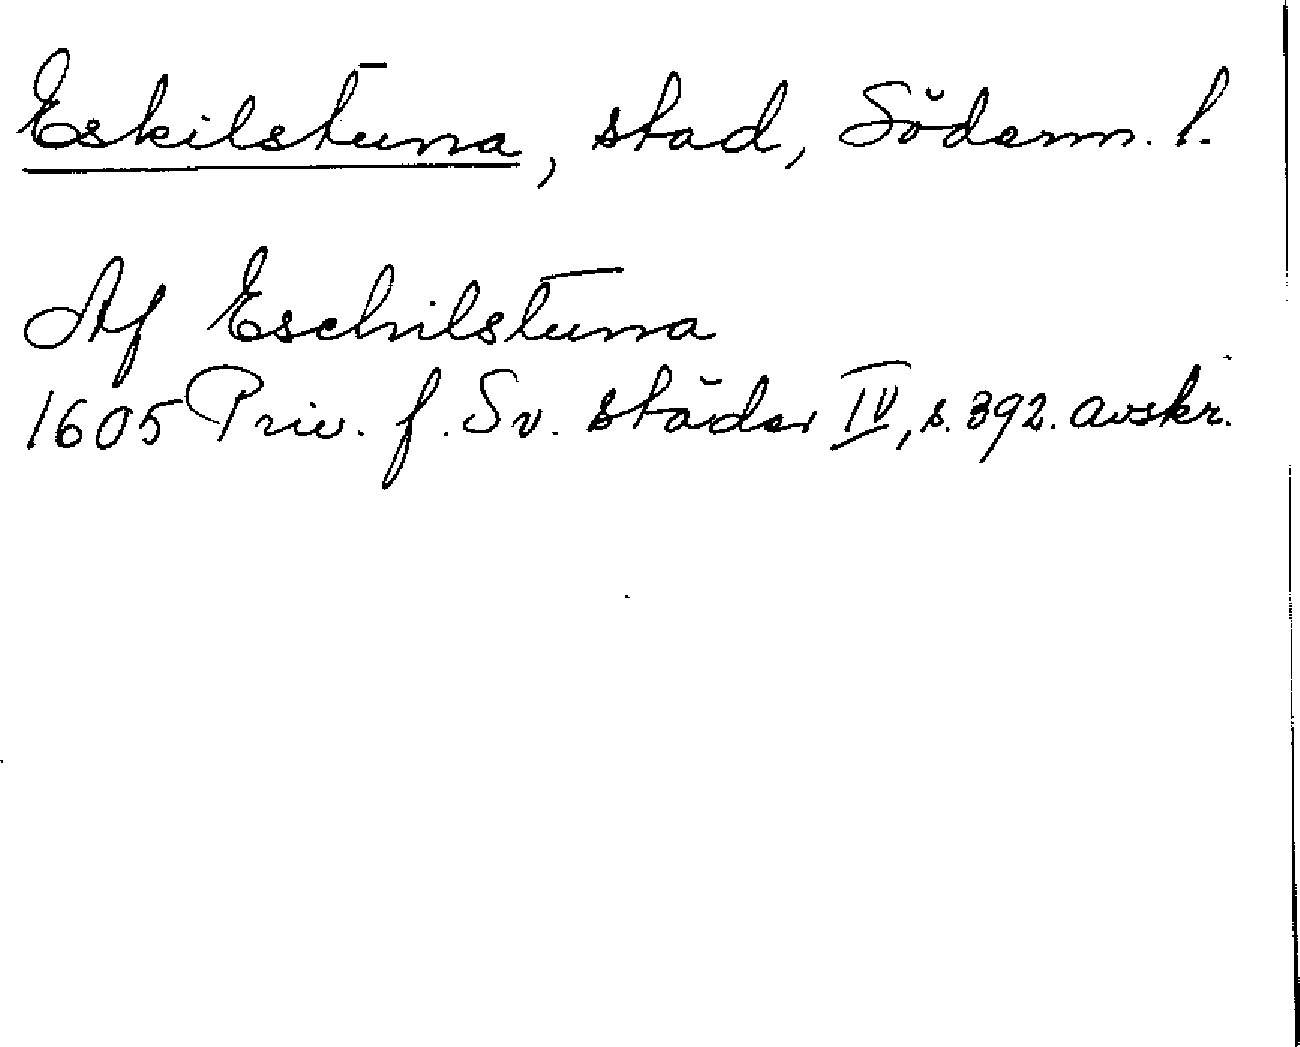 Eskilstuna, stad, Söderm. l.
Af Eschilstuna
1605 Priv. f. Sv. städer IV, s. 392. avskr.